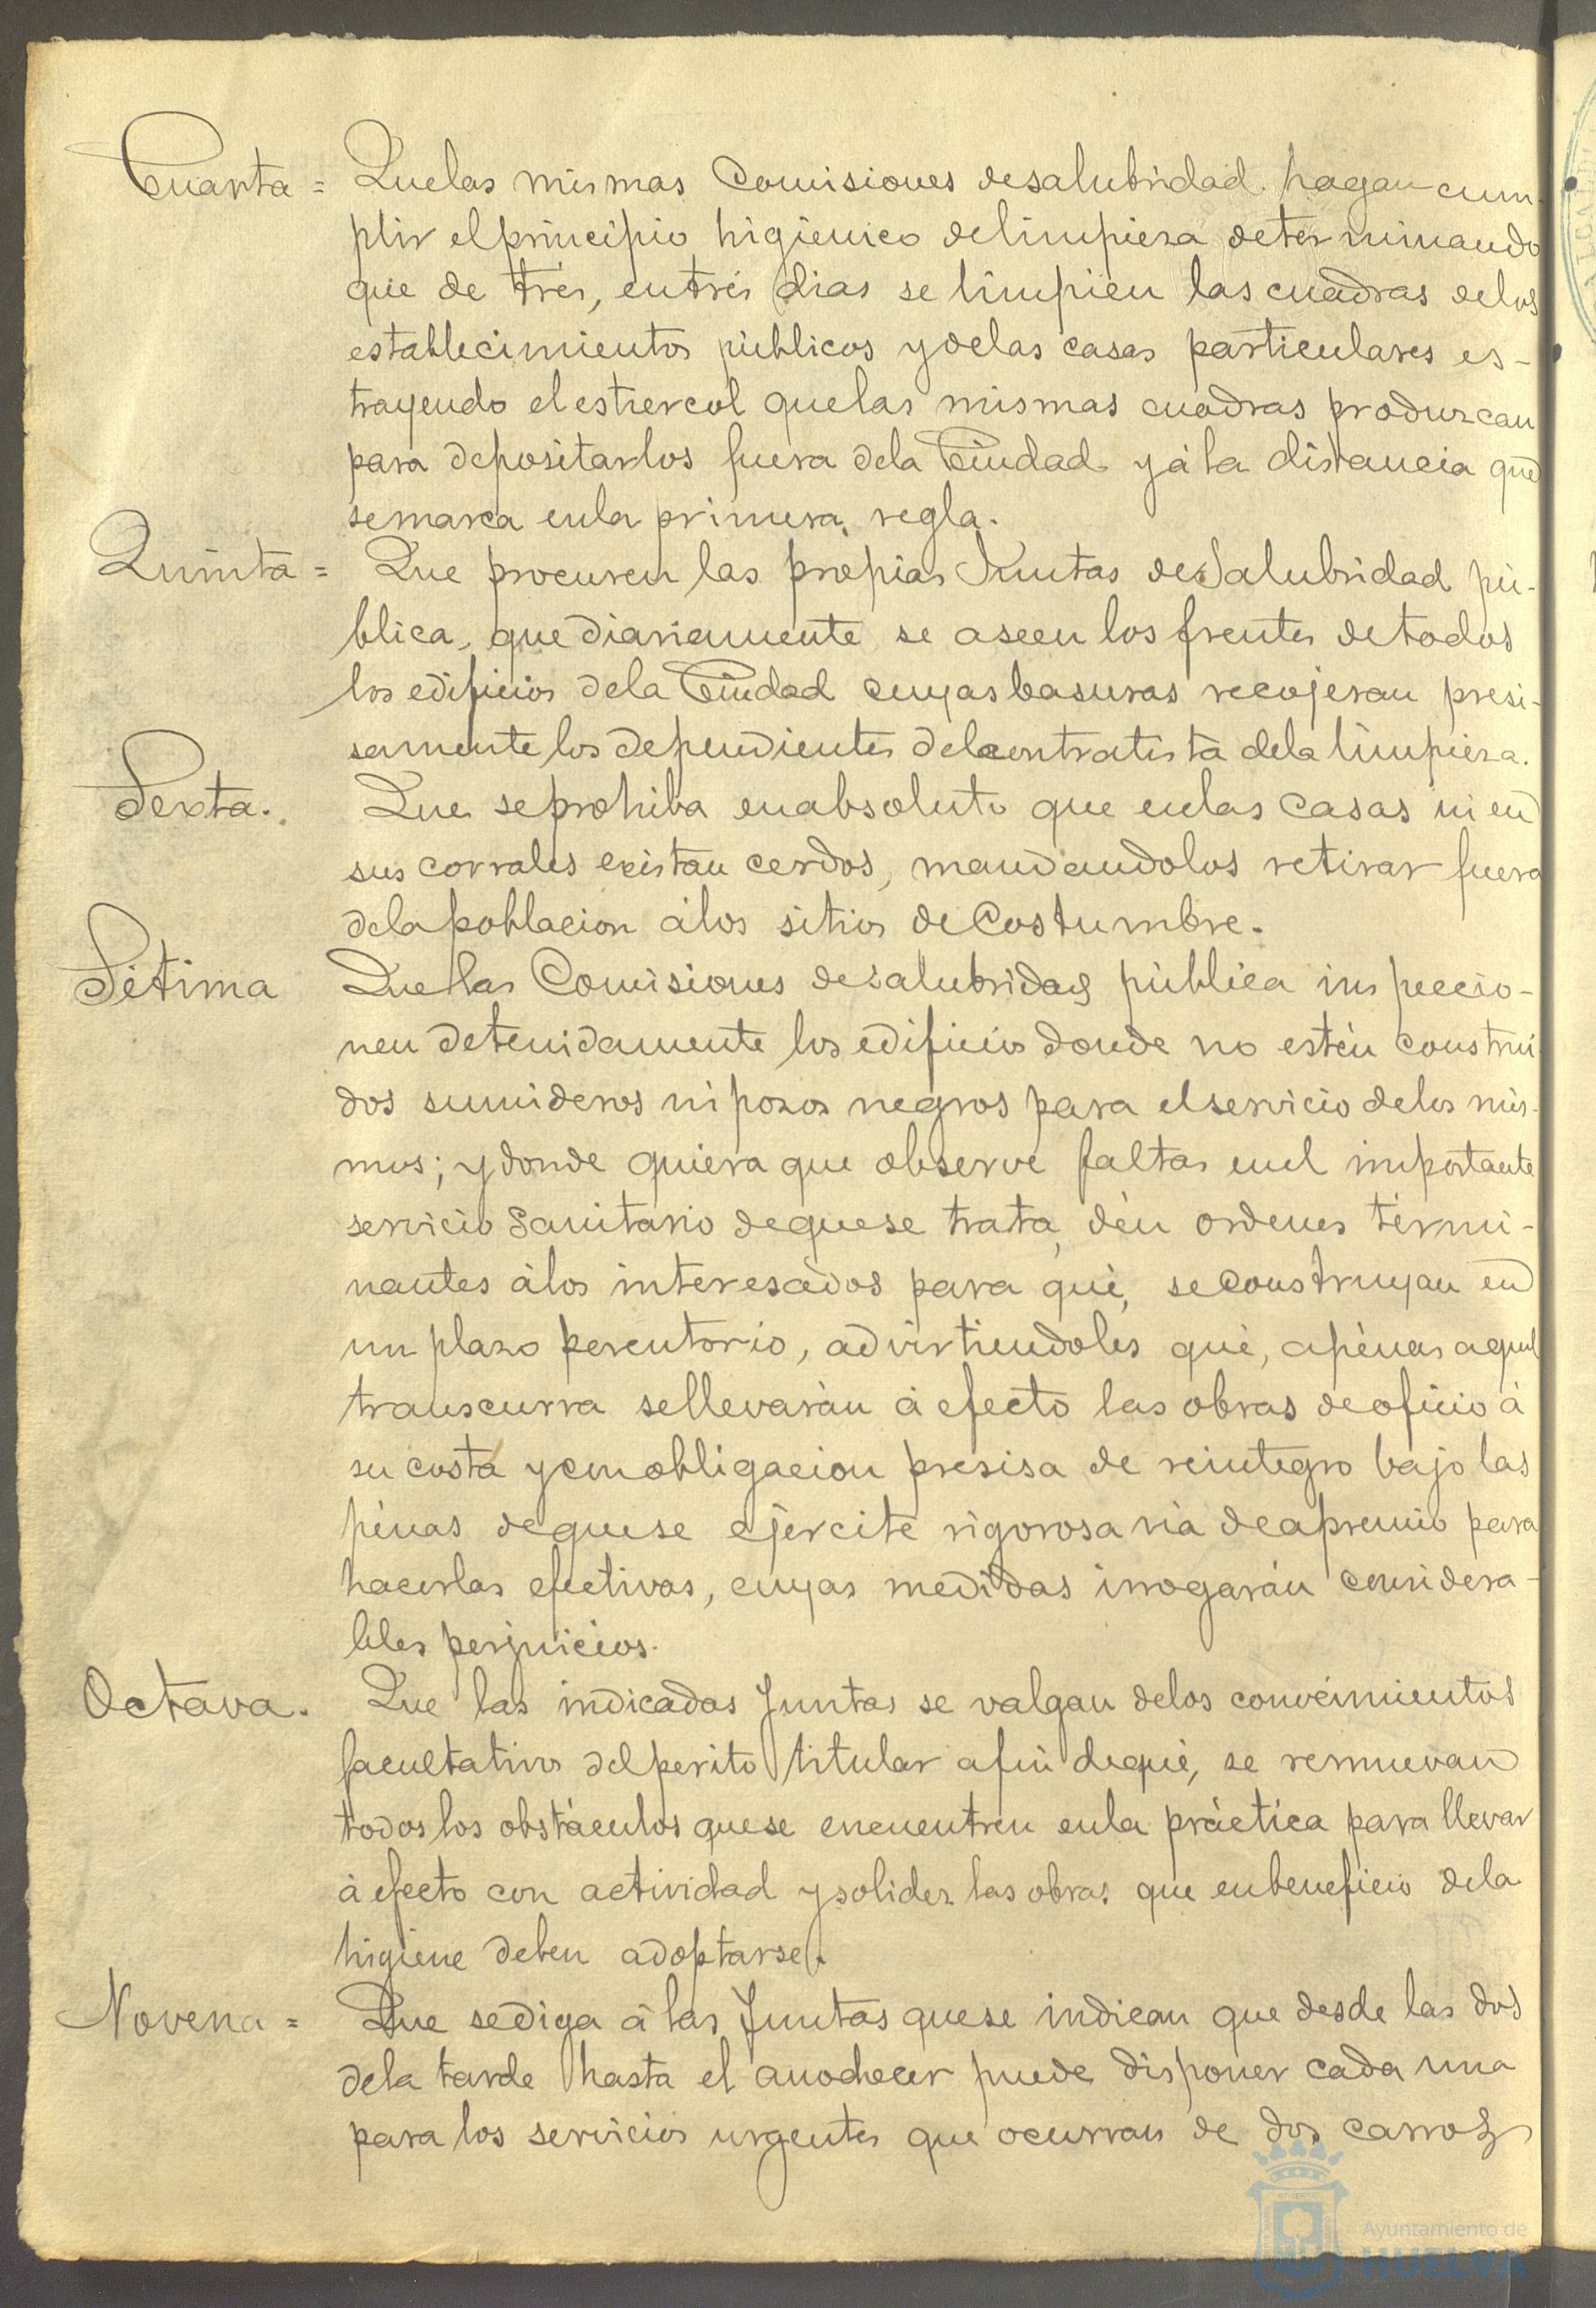 Cuarta = Que las mismas Comisiones de salubridad hagan cum-
plir el principio higiénico de limpieza determinando
que de trés, en trés dias se limpien las cuadras de los
establecimientos públicos y de las casas particulares es-
trayendo el estiercol que las mismas cuadras produzcan
para depositarlos fuera de la Ciudad y á la distancia que
se marca en la primera regla.
Quinta = Que procuren las própias Juntas de Salubridad pú-
blica, que diariamente se aseen los frentes de todos
los edificios de la Ciudad cuyas basuras recojeran presi-
samente los dependientes del contratista de la limpieza.
Sexta. Que se prohiba en absoluto que en las casas ni en
sus corrales existan cerdos, mandandolos retirar fuera
de la poblacion á los sitios de Costumbre.
Sétima Que las Comisiones de salubridad pública inspeccio-
nen detenidamente los edificios donde no estén construi
dos sumideros ni pozos negros para el servicio de los mis-
mos; y donde quiera que observe faltas en el importante
servicio Sanitario de que se trata, dén ordenes térmi-
nantes á los interesados para qué, se construyan en
un plazo perentorio, advirtiendoles qué, apénas aquel
transcurra se llevarán á efecto las obras de oficio á
su costa y con obligacion presisa de reintegro bajo las
pénas de que se ejercite rigorosa via de apremio para
hacerlas efectivas, cuyas medidas irrogarán considera-
bles perjuicios.
Octava. Que las indicadas Juntas se valgan de los conocimientos
facultativos del perito titular a fin de qué, se remuevan
todos los obstáculos que se encuentren en la práctica para llevar
á efecto con actividad y solidez las obras que en beneficio de la
higiene deben adoptarse.
Novena = Que se diga á las Juntas que se indican que desde las dos
de la tarde hasta el anochecer puede disponer cada una
para los servicios urgentes que ocurran de dos carros
Ayuntamiento de
HUELVA